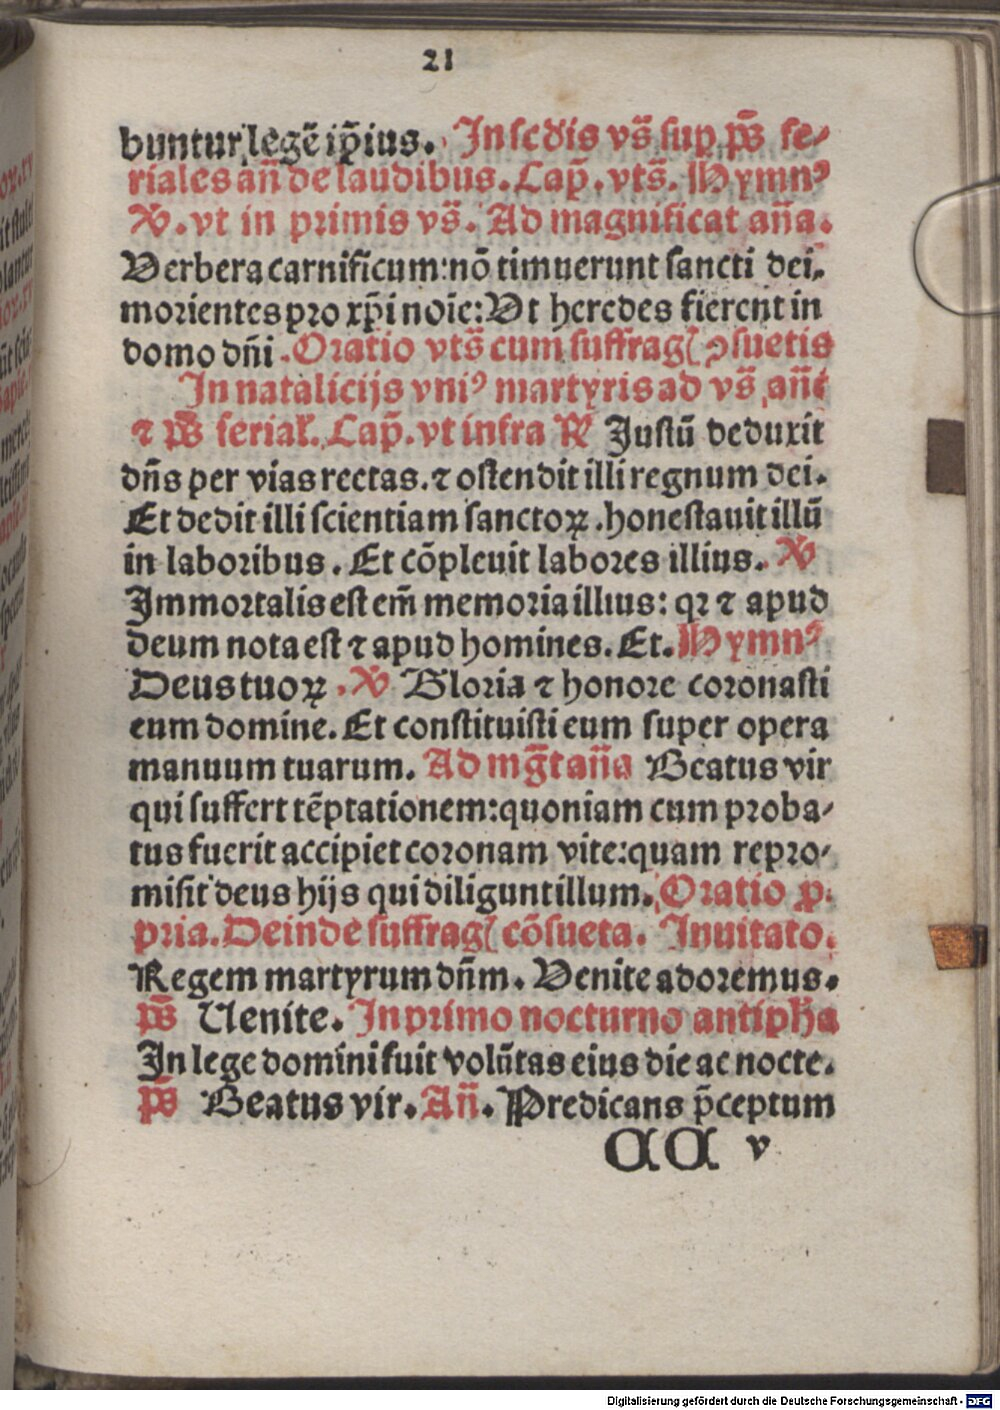 21
buntur legē ip̄ius. In sedis vs̄ sup ps̄ fe⸗
riales an̄ de laudibus. Cap̄. vts̄. Hymnꝰ
℣. vt in primis vs̄. Ad magnificat an̄a.
Verbera carnificum: nō timuerunt sancti dei,
morientes pro xp̄i noīe: Vt heredes fierent in
domo dn̄i. Oratio vts̄ cum suffrag( ↄsuetis
In natalicijs vniꝰ martyris ad vs̄ an̄e
⁊ ps̄ ferial'. Cap̄. vt infra ℟ Justū deduxit
dn̄s per vias rectas. ⁊ ostendit illi regnum dei.
Et dedit illi scientiam sanctoꝝ. honestauit illū
in laboribus. Et cōpleuit labores illius. ℣
Immortalis est em̄ memoria illius: qꝛ ⁊ apud
deum nota est ⁊ apud homines. Et. Hymnꝰ
Deus tuoꝝ. ℣ Gloria ⁊ honore coronasti
eum domine. Et constituisti eum super opera
manuum tuarum. Ad mg̅t an̄a Beatus vir
qui suffert tēptationem: quoniam cum proba⸗
tus fuerit accipiet coronam vite: quam repro⸗
misit deus hijs qui diligunt illum. Oratio ꝓ⸗
pria. Deinde suffrag( cōsueta. Inuitato.
Regem martyrum dn̄m. Venite adoremus.
ps̄ Uenite. In primo nocturno antiph̄a
In lege domini fuit volūtas eius die ac nocte.
ps̄ Beatus vir. An̄. Predicans p̄ceptum
AA v
Digitalisierung gefördert durch die Deutsche Forschungsgemeinschaft - DFG